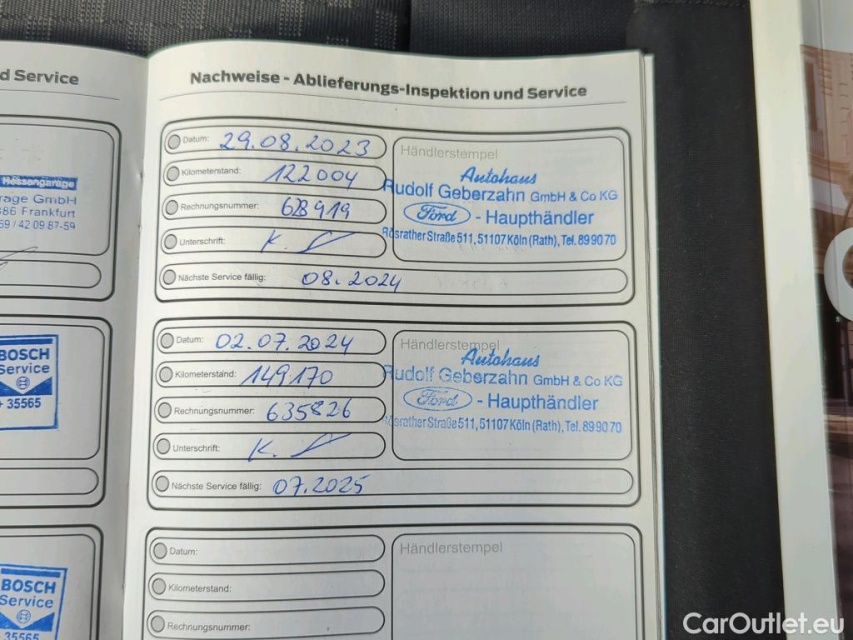 d Service
Hessengarage
rage GmbH
386 Frankfurt
69 / 42 09 87-59
BOSCH
Service
35565
BOSCH
Service
35565
Nachweise - Ablieferungs-Inspektion und Service
Datum: 29.08.2023
Kilometerstand: 122004
Rechnungsnummer: 628919
Unterschrift: K.
Nächste Service fällig: 08.2024
Händlerstempel
Autohaus
Rudolf Geberzahn GmbH & Co KG
Ford - Haupthändler
Rösrather Straße 511, 51107 Köln (Rath), Tel. 89 90 70
Datum: 02.07.2024
Kilometerstand: 149170
Rechnungsnummer: 635826
Unterschrift: K.
Nächste Service fällig: 07.2025
Händlerstempel
Autohaus
Rudolf Geberzahn GmbH & Co KG
Ford - Haupthändler
Rösrather Straße 511, 51107 Köln (Rath), Tel. 89 90 70
Datum:
Kilometerstand:
Rechnungsnummer:
Händlerstempel
CarOutlet.eu